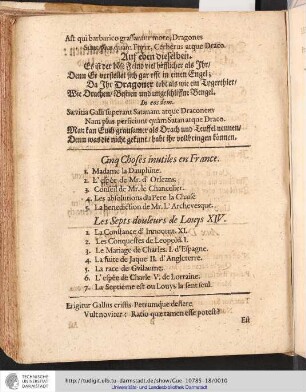 Ast qui barbarico grassantur more, Dragones
Sunt plus quàm Furiæ, Cerberus atque Draco.
Auff eben dieselben.
Es ist der böß Feind viel höfflicher als Ihr/
Denn Er verstellet sich gar offt in einen Engel;
Da Ihr Dragoner tobt als wie ein Tygerthier/
Wie Drachen/ Bestien und ungeschliffne Bengel.
In eos dem.
Sævitia Galli superant Satanam atque Draconem
Nam plus perficiunt quàm Satan atque Draco.
Man kan Euch grausamer als Drach und Teuffel nennen/
Denn was die nicht gekunt/ habt ihr vollbringen können.
Cinq Choses inutiles en France.
1. Madame la Dauphine.
2. L'espée de Mr. d'Orleans.
3. Conseil de Mr. le Chancelier.
4. Les absolutions du Pere la Chaise
5. La benediction de Mr. L'Archevesque.
Les Septs douleurs de Louys XIV.
1. La Constance d'Innocent XI.
2. Les Conquestes de Leopold I.
3. Le Mariage de Charles I. d'Espagne.
4. La fuite de Jaque II. d'Angleterre.
5. La race de Guilaume.
6. L'espée de Charle V. de Lorraine.
7. La Septieme est ou Louys la sent seul.
Erigitur Gallus cristis Petrumque deflere.
Vult noviter: Ratio quæ tamen esse potest?
Est
http://tudigit.ulb.tu-darmstadt.de/show/Gue-10785-18/0010
Universitäts- und Landesbibliothek Darmstadt